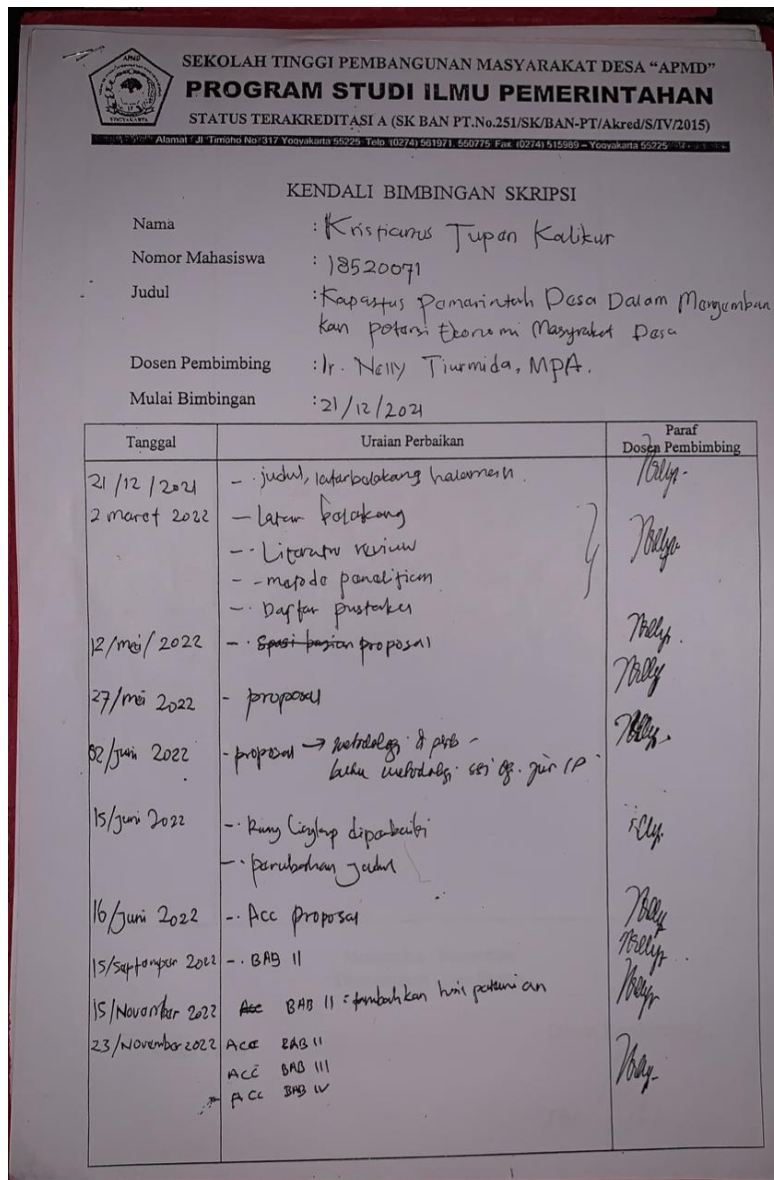 APMD
YOGYAKARTA
SEKOLAH TINGGI PEMBANGUNAN MASYARAKAT DESA "APMD"
PROGRAM STUDI ILMU PEMERINTAHAN
STATUS TERAKREDITASI A (SK BAN PT.No.251/SK/BAN-PT/Akred/S/IV/2015)
Alamat : Jl Timoho No. 317 Yogyakarta 55225 Telp. (0274) 561971, 550775 Fax. (0274) 515989 – Yogyakarta 55225
KENDALI BIMBINGAN SKRIPSI
Nama : Kristianus Tupan Kalikur
Nomor Mahasiswa : 18520071
Judul : Kapasitas Pemerintah Desa Dalam Mengemban
kan potensi Ekonomi Masyrakat Desa
Dosen Pembimbing : Ir. Nelly Tiurmida, MPA.
Mulai Bimbingan : 21/12/2021
Tanggal Uraian Perbaikan Paraf
Dosen Pembimbing
21/12/2021 - judul, latarbelakang
2 maret 2022 - Latar belakang
- Literatur review
- metode penelitian
- Daftar pustaka
12/mei/2022 - proposal
27/mei 2022 - proposal
02/Juni 2022 - proposal → metodologi
buku metodologi
15/Juni 2022 - Ruang Lingkup diperbaiki
- perubahan Judul
16/Juni 2022 - Acc proposal
15/September 2022 - BAB II
15/November 2022 Acc BAB II : tambahkan
23/November 2022 Acc BAB II
ACC BAB III
ACC BAB IV